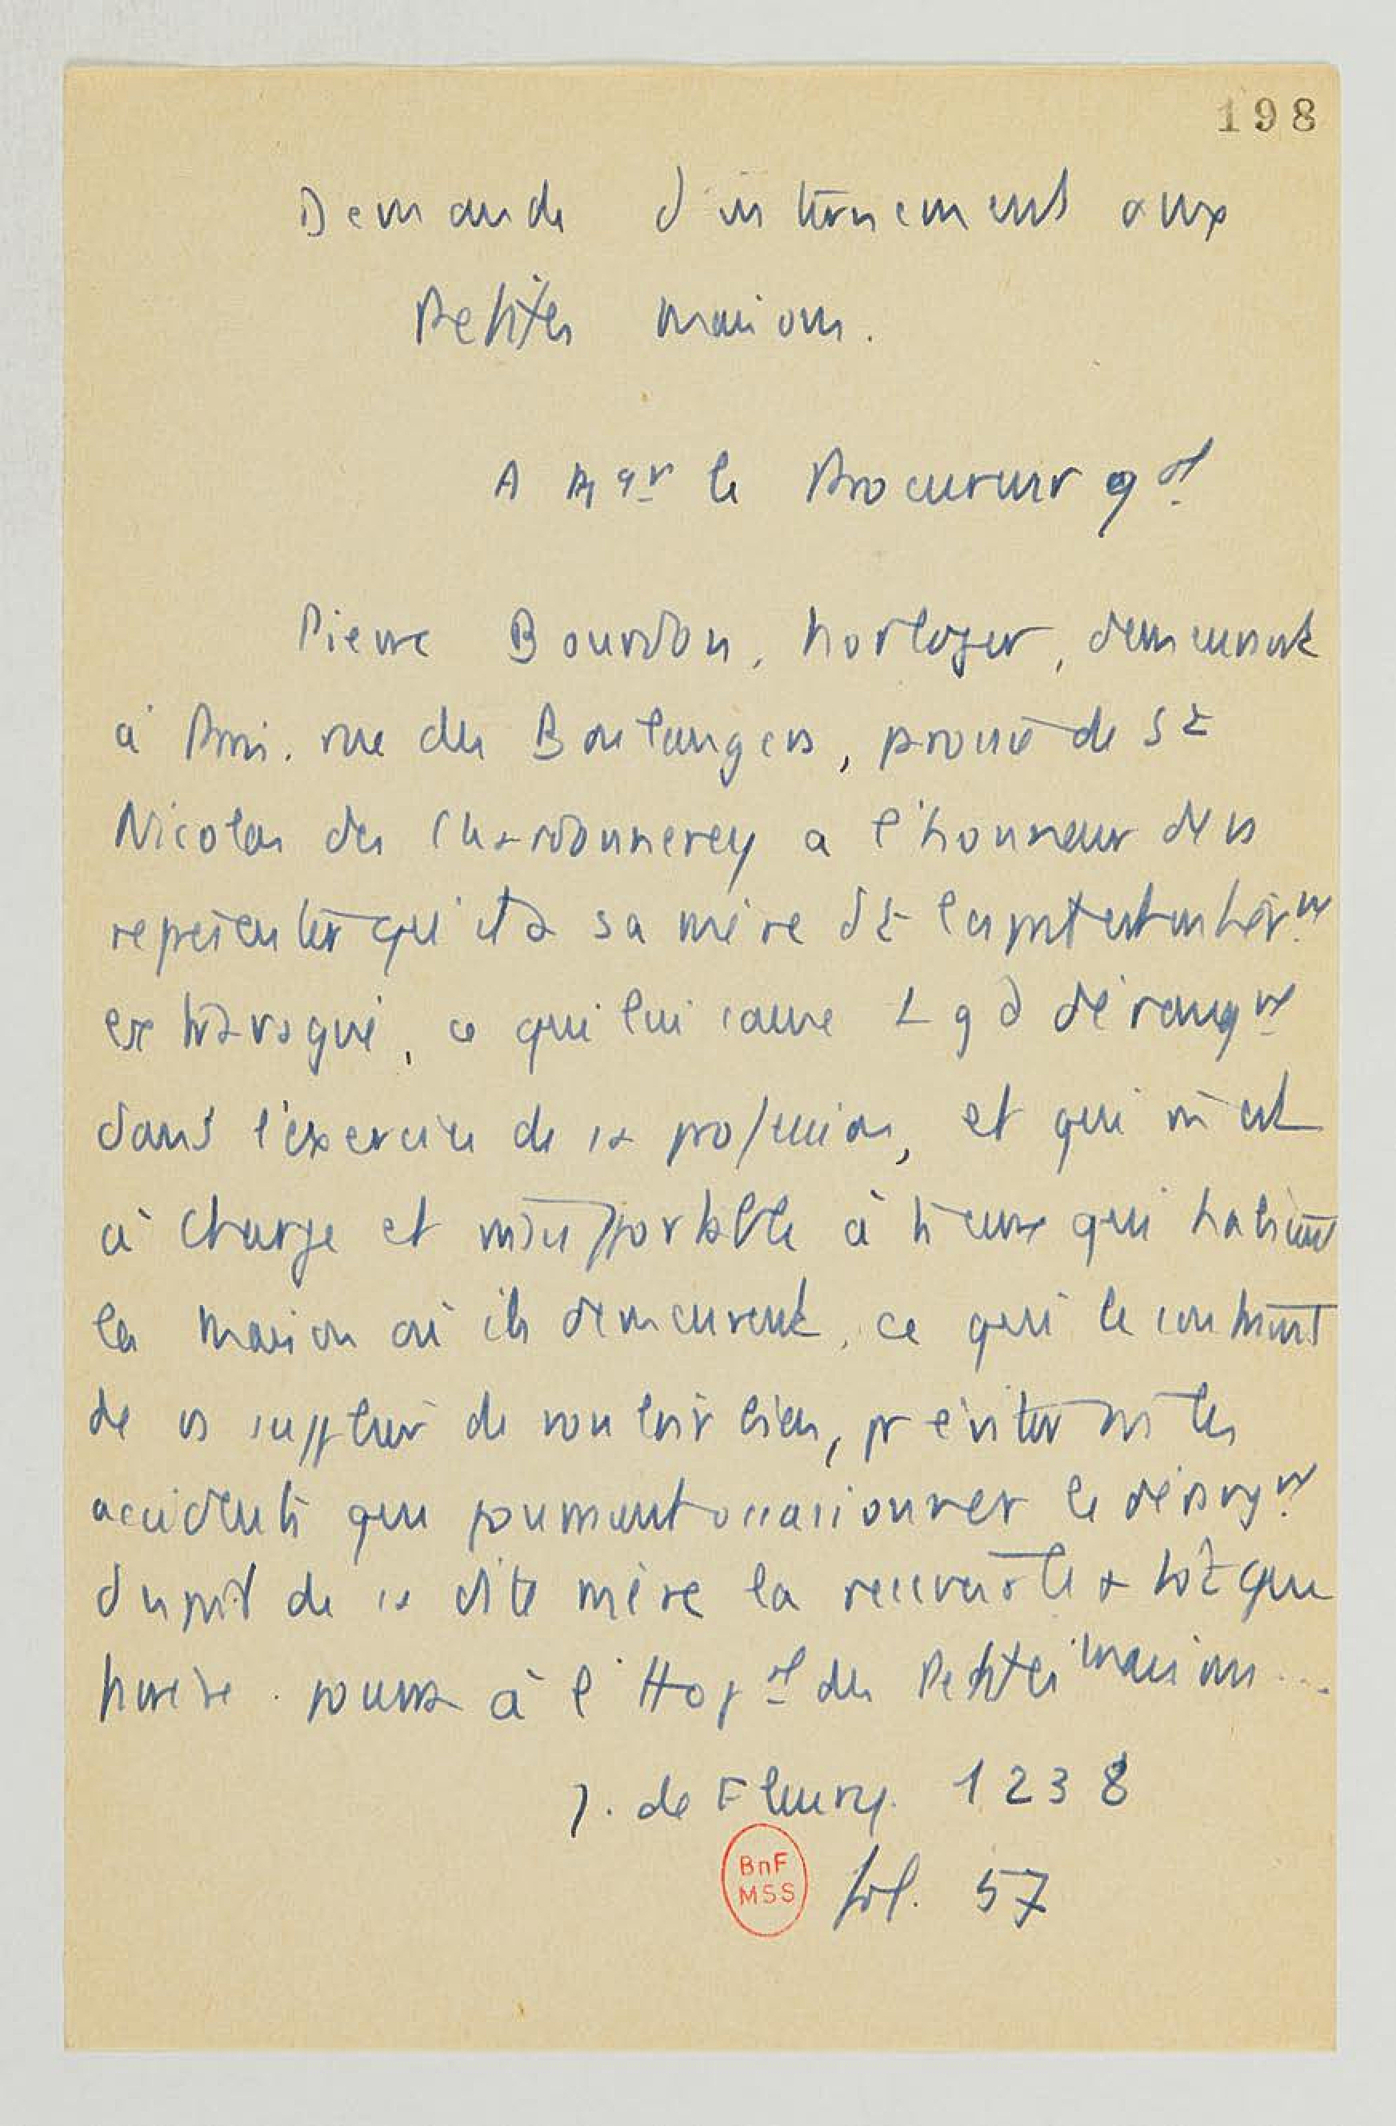 198
Demande d'internement aux
Petites maisons.
A Mgr le Procureur gal
Pierre Bourdon, horloger, demeurant
à Paris. rue des Boulangers, paroisse de St
Nicolas du Chardonnerey a l'honneur de vs
représenter que sa mère dt l'esprit est entièrmt
extravagué, ce qui lui cause 1 gd dérangt
dans l'exercice de sa profession, et qui m est
à charge et insupportable à ts ceux qui habitent
la maison où ils demeurent, ce qui le contraint
de vs supplier de vouloir bien, pr éviter ts les
accidents que pourraient occasionner le dérangt
d'esprit de sa dite mère la recevoir le + tôt que
faire pourra à l'Hopal des Petites maisons...
J. de Fleury. 1238
fol. 57
BnF
MSS